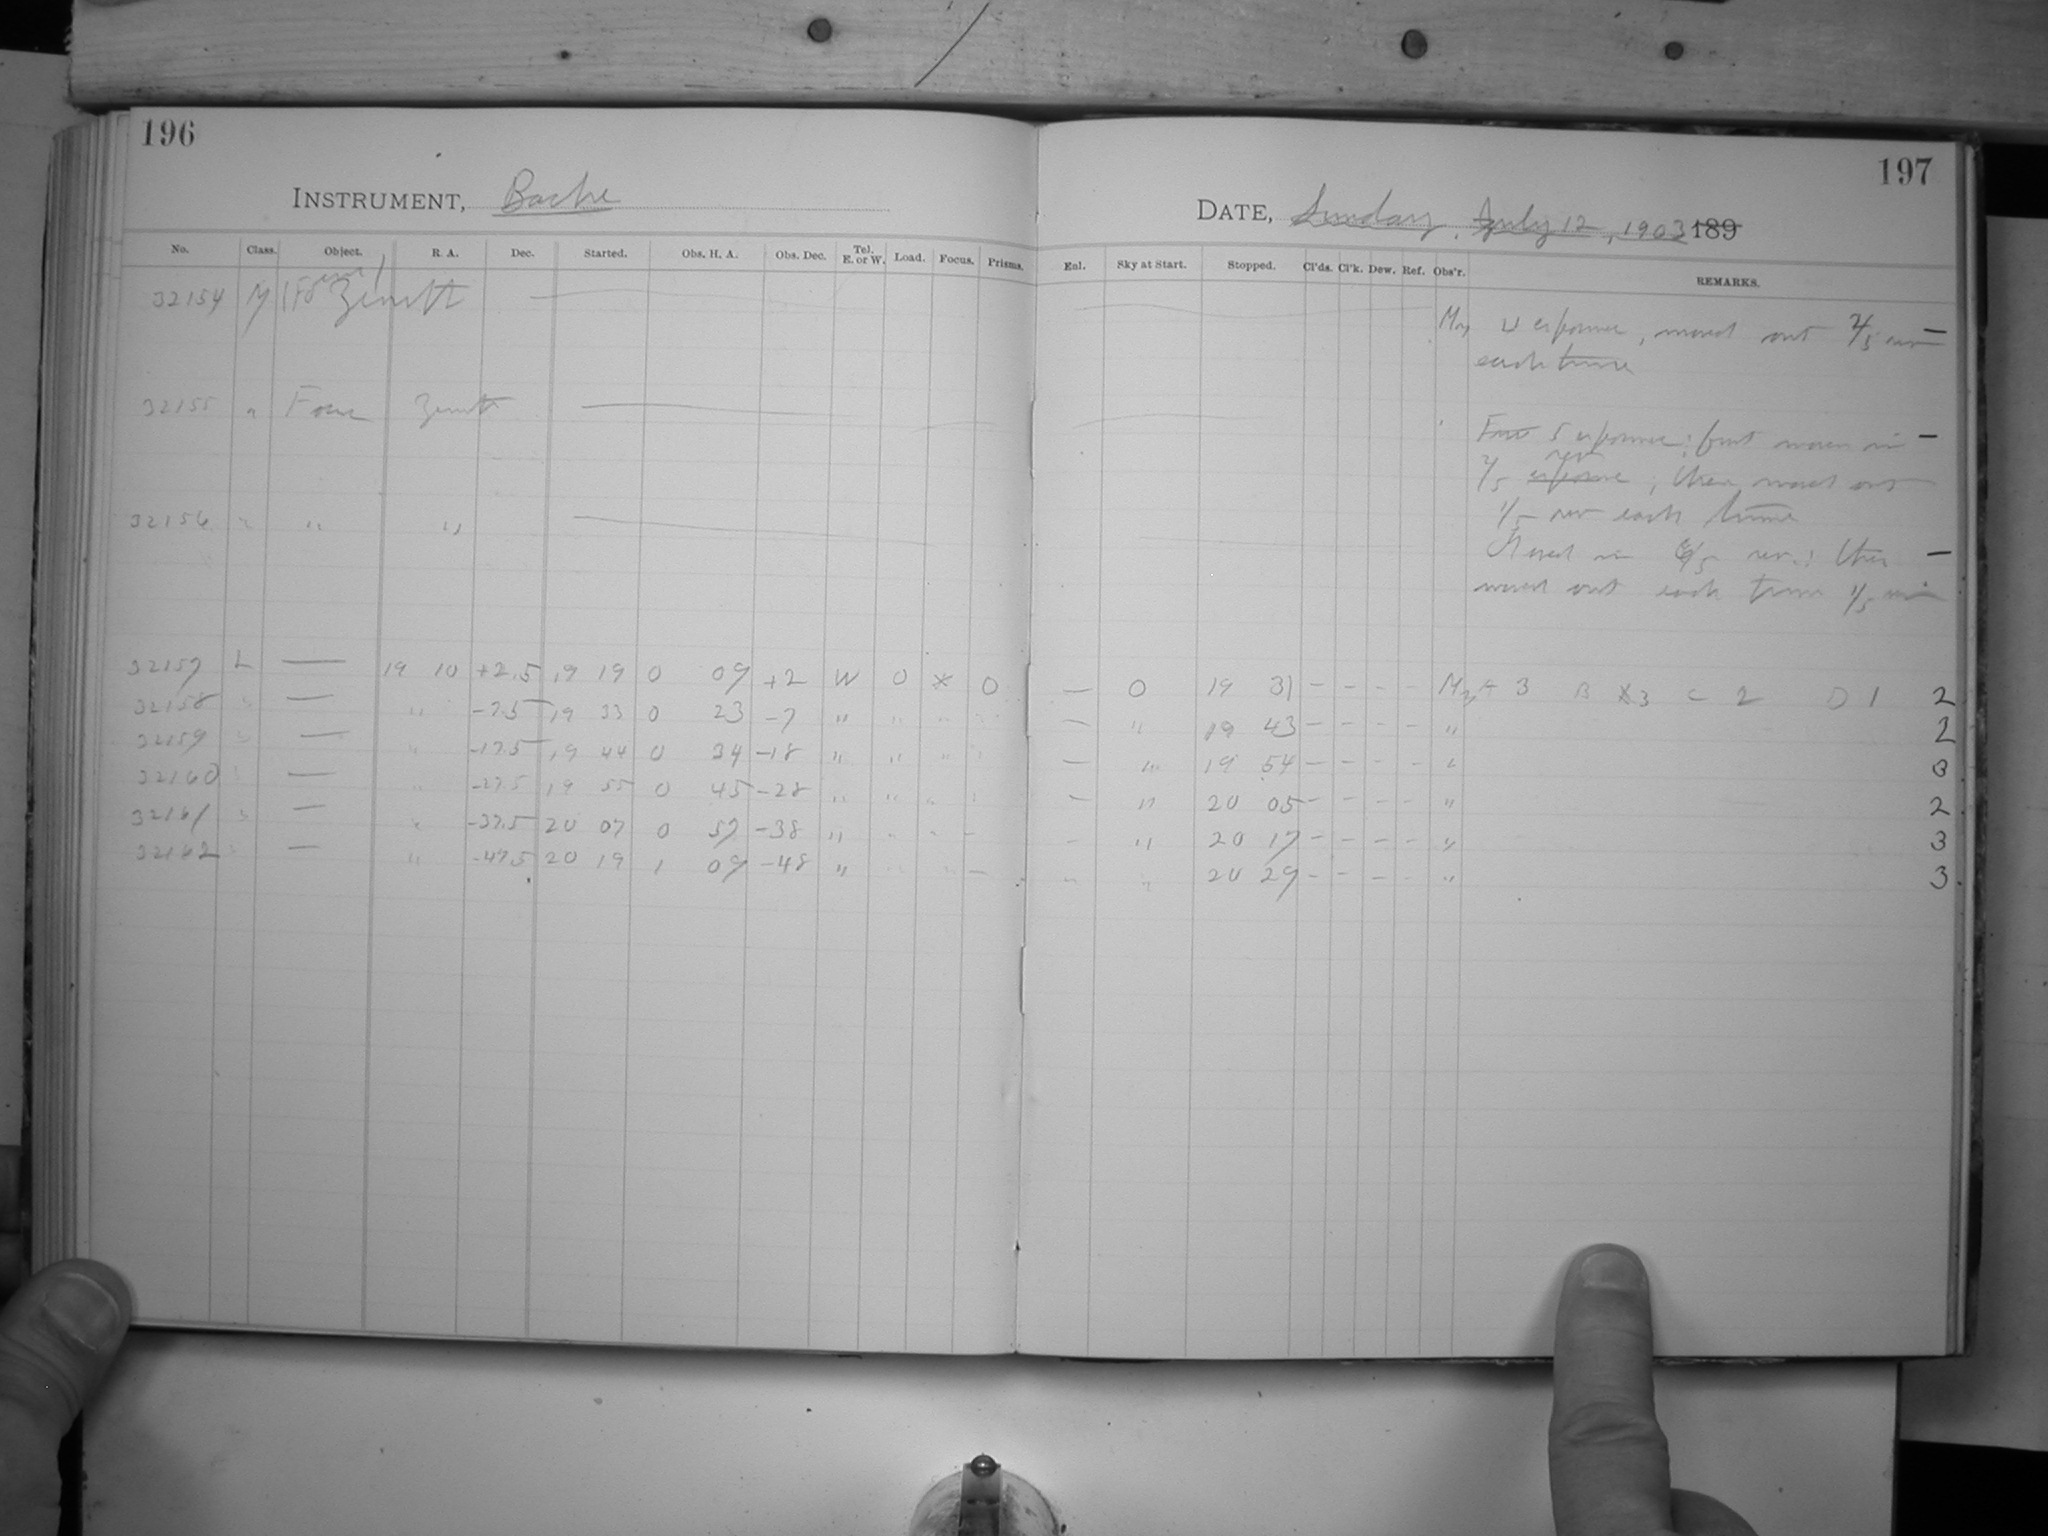 196
INSTRUMENT, Bache
No. Class. Object. R. A. Dec. Started. Obs. H. A. Obs. Dec. Tel. E. or W. Load. Focus. Prisms.
32154 Zenith
32155 " Focus Zenith
32156 " " "
32157 L — 19 10 +2.5 19 19 0 09 +2 W 0 * 0
32158 " — " -7.5 19 33 0 23 -7 " " " "
32159 " — " -17.5 19 44 0 34 -18 " " " "
32160 " — " -27.5 19 55 0 45 -28 " " " "
32161 " — " -37.5 20 07 0 57 -38 " " " "
32162 " — " -47.5 20 19 1 09 -48 " " " "
197
DATE, Sunday, July 12, 1903 189
Enl. Sky at Start. Stopped. Cl'ds. Cl'k. Dew. Ref. Obs'r. REMARKS.
exposures, moved out 2/5 rev —
each time
5 exposures; first moved in —
2/5 rev; then moved out
1/5 rev each time
Moved in rev.; then —
moved out each time 1/5
— 0 19 31 - - - - 3 B 3 C 2 D 1 2
— " 19 43 - - - - " 2
— " 19 54 - - - - " 3
— " 20 05 - - - - " 2
- " 20 17 - - - - " 3
- " 20 29 - - - - " 3